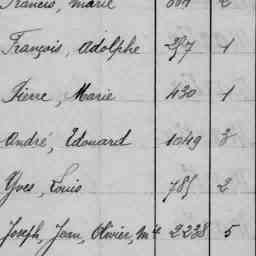 Francis, Marie 2
François, Adolphe 257 1
Pierre, Marie 430 1
André, Edouard 1049 3
Yves, Louis 785 2
Joseph, Jean, Olivier, Mie 2238 5